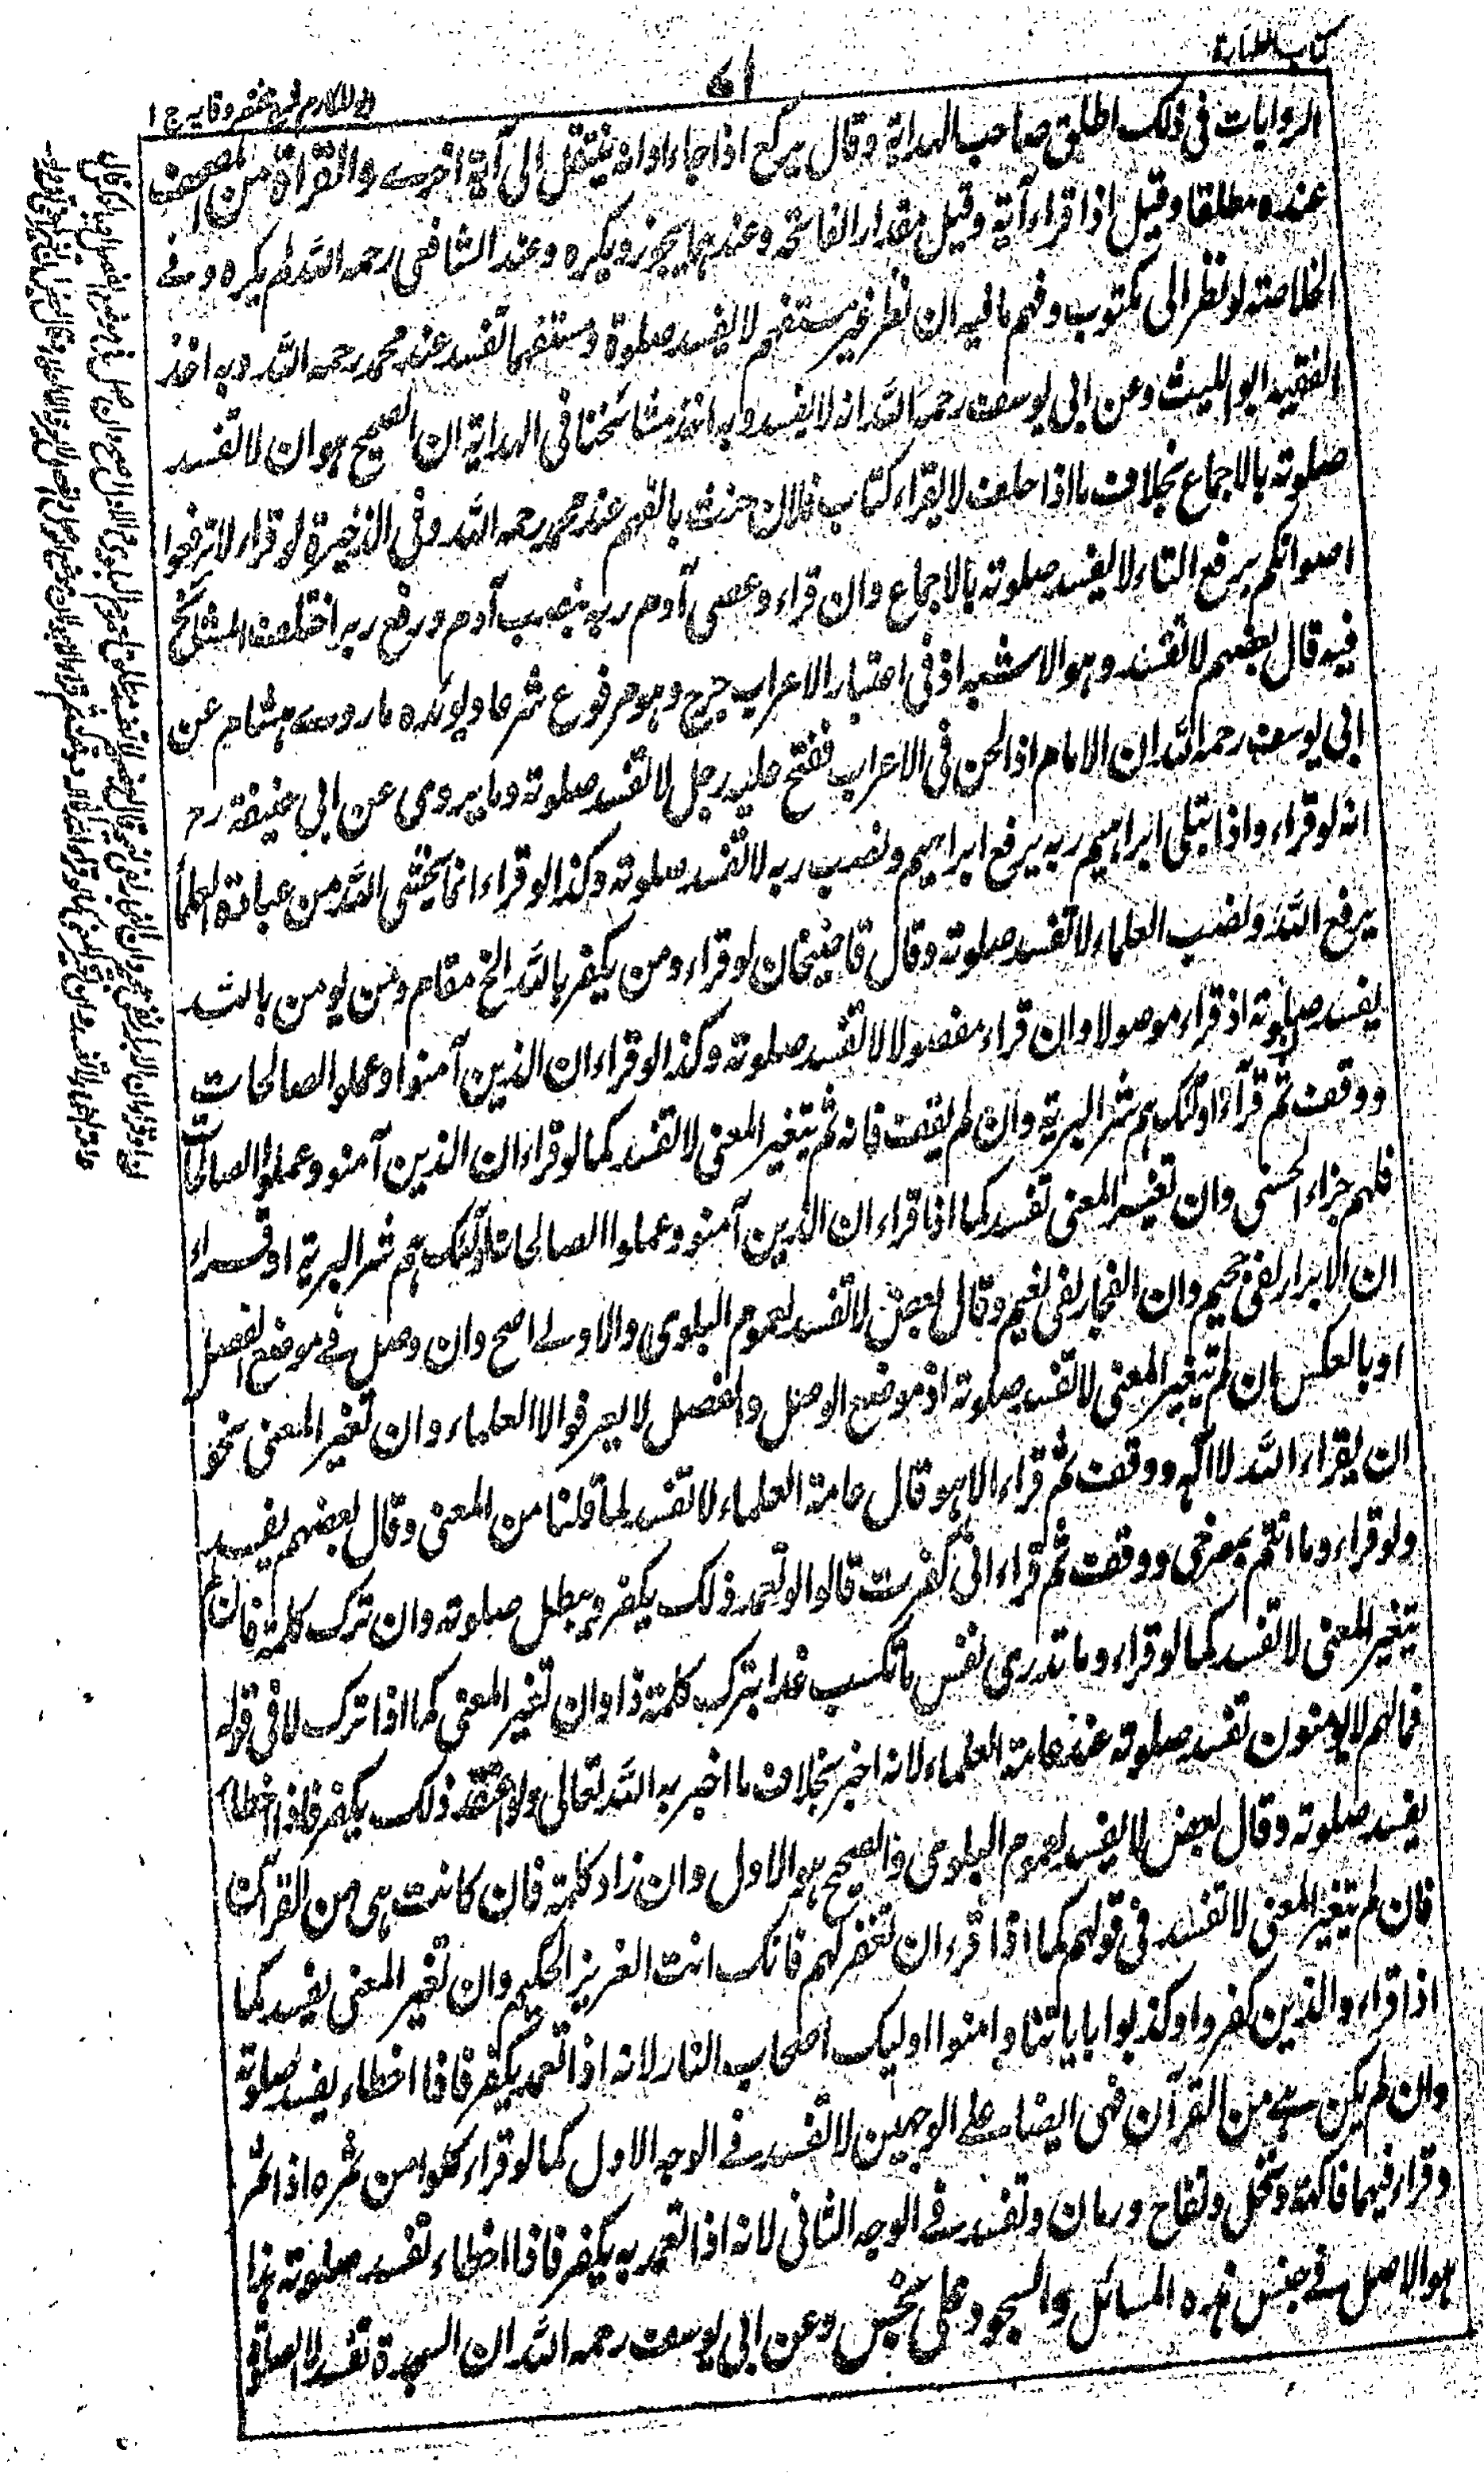 كتاب الطهارة
ا ے
ابو المكارم شرح مختصر وقايه ج ا
الروايات فى ذلك اطلق صاحب الهداية وقال يركع اذا جاء اوانه ينتقل الى آية اخرے والقراة من المصحف
عنده مطلقا وقيل اذا قراء آية وقيل مقدار الفاتحة وعندهما يجوز ويكره وعند الشافعى رحمه الله لم يكره وفے
الخلاصة لو نظر الى مكتوب وفهم ما فيه ان نظر غير مستفهم لا يفسد صلوة ومستفهما تفسد عند محمد رحمه الله وبه اخذ
الفقيه ابو الليث وعن ابى يوسف رحمه الله انه لا يفسد وبه اخذ مشائخنا فى الهداية ان الصحيح هو ان لا تفسد
صلوته بالاجماع بخلاف ما اذا حلف لا يقراء كتاب فلان حنث بالفهم عند محمد رحمه الله وفى الذخيرة لو قراء لا ترفعوا
اصواتكم برفع التاء لا يفسد صلوته بالاجماع وان قراء وعصى آدم ربه بنصب آدم ورفع ربه اختلف المشائخ
فيه قال بعضهم لا تفسد وهو الاشبه اذ فى اعتبار الاعراب حرج وهو مرفوع شرعا ويؤيده ما روے هشام عن
ابى يوسف رحمه الله ان الامام اذا لحن فى الاعراب ففتح عليه رجل لا تفسد صلوته وما يروى عن ابى حنيفة رح
انه لو قراء واذ ابتلى ابراهيم ربه برفع ابراهيم ونصب ربه لا تفسد صلوته وكذا لو قراء انما يخشى الله من عباده العلماء
برفع الله ونصب العلماء لا تفسد صلوته وقال قاضيخان لو قراء ومن يكفر بالله الخ مقام ومن يومن بالله
يفسد صلوته اذ قراء موصولا وان قراء مفصولا لا تفسد صلوته وكذا لو قراء ان الذين آمنوا وعملوا الصالحات
ووقف ثم قراء اولئك هم شر البرية وان لم يقف فانه لم يتغير المعنى لا تفسد كما لو قراء ان الذين آمنو وعملوا الصالحات
فلهم جزاء الحسنى وان تغير المعنى تفسد كما اذا قراء ان الذين آمنو وعملوا الصالحات اولئك هم شر البرية او قراء
ان الابرار لفى جحيم وان الفجار لفى نعيم وقال بعض لا تفسد لعموم البلوى والاولے اصح وان وصل فے موضع الفصل
او بالعكس ان لم يتغير المعنى لا تفسد صلوته اذ موضع الوصل والفصل لا يعرفو الا العلماء وان تغير المعنى نحو
ان يقراء الله لا اله ووقف ثم قراء الا هو قال عامة العلماء لا تفسد لما قلنا من المعنى وقال بعضهم يفسد
ولو قراء وما انتم بمصرخى ووقف ثم قراء انى كفرت قالوا لو تعمد ذلك يكفر ويبطل صلوته وان ترك كلمة فان لم
يتغير المعنى لا تفسد كما لو قراء وما تدرى نفس ما تكسب غدا بترك كلمة ذا وان تغير المعنى كما اذا ترك لا فى قوله
فما لهم لا يومنون تفسد صلوته عند عامة العلماء لانه اخبر بخلاف ما اخبر به الله تعالى ولو اعتقد ذلك يكفر فاذا اخطاء
يفسد صلوته وقال بعض لا يفسد لعموم البلوى والصحيح هو الاول وان زاد كلمة فان كانت هى من القرآن
فان لم يتغير المعنى لا تفسد فى قولهم كما اذا قراء ان تغفر لهم فانك انت العزيز الحكيم وان تغير المعنى يفسد كما
اذا قراء والذين كفروا وكذبوا باياتنا وامنوا اوليك اصحاب النار لانه اذا تعمد يكفر فاذا اخطاء يفسد صلوته
وان لم يكن هے من القرآن فهى ايضا علے الوجهين لا تفسد فے الوجه الاول كما لو قراء كلوا من ثمره اذا اثمر
وقراء فيهما فاكهة ونخل وتفاح ورمان وتفسد فے الوجه الثانى لانه اذا تعمد به يكفر فاذا اخطاء تفسد صلوته هذا
هو الاصل فے جنس هذه المسائل والسجود على نجس وعن ابى يوسف رحمه الله ان السجدة تفسد لا الصلوة